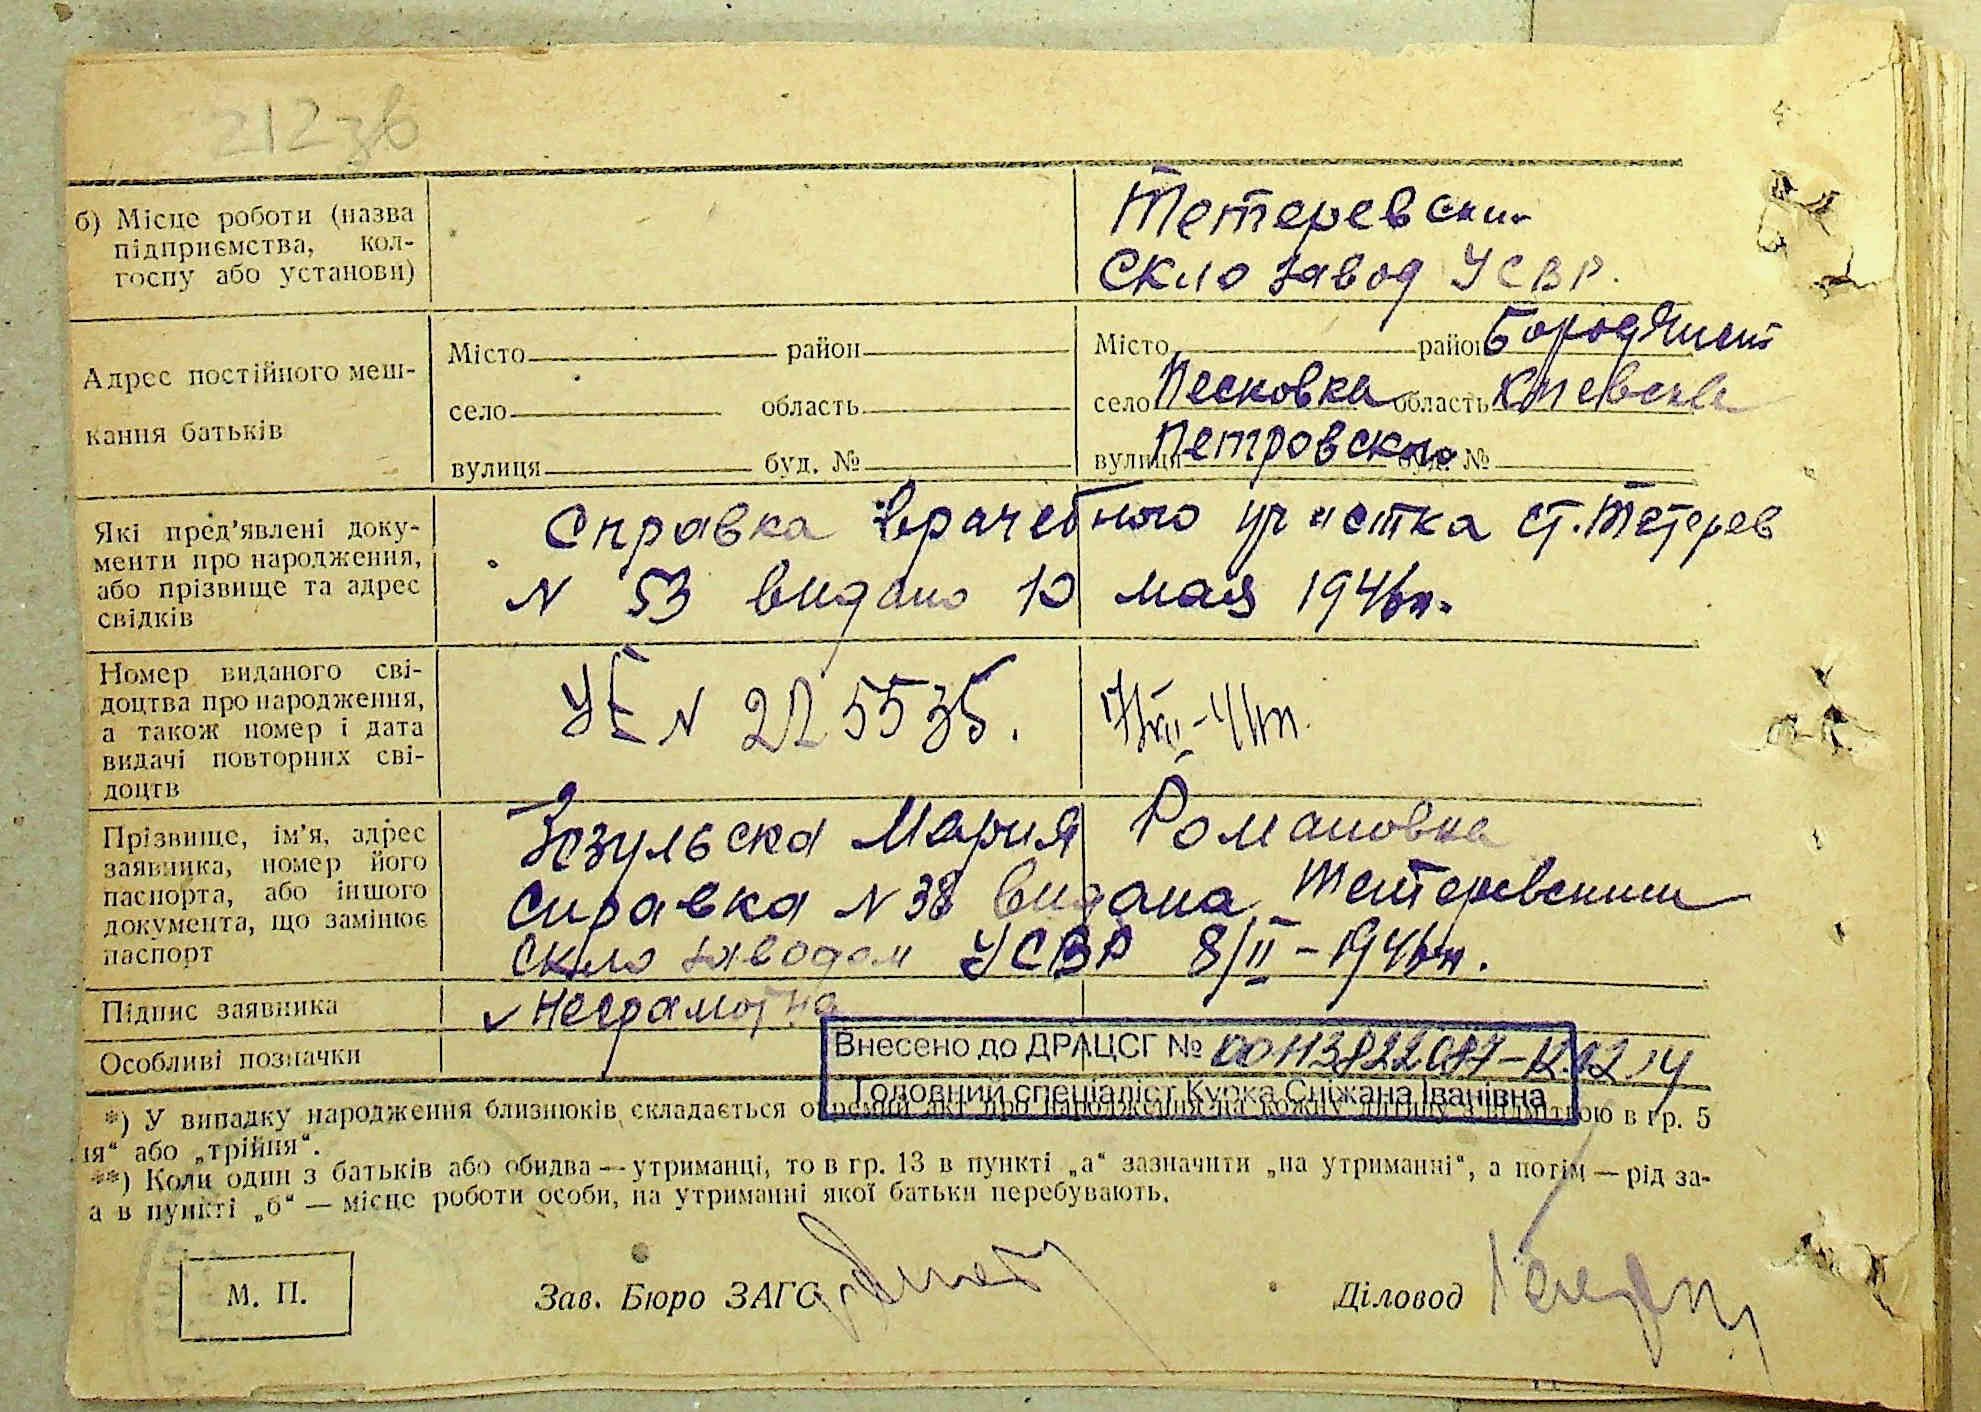 212зв
б) Місце роботи (назва
підприємства, кол-
госпу або установи)
Тетеревский
Скло завод УСВР.
Адрес постійного меш-
кання батьків
Місто район
село область
вулиця буд. №
Місто район Бородянск
село Песковка область Киевска
вулиця Петровского буд. №
Які пред'явлені доку-
менти про народження,
або прізвище та адрес
свідків
Справка врачебного участка ст. Тетерев
N 53 видано 10 мая 1946р.
Номер виданого сві-
доцтва про народження,
а також номер і дата
видачі повторних сві-
доцтв
УЕ N 225535.
Прізвище, ім'я, адрес
заявника, номер його
паспорта, або іншого
документа, що замінює
паспорт
Зезульска Мария Романовна
Справка N 38 видана Тетеревским
Скло заводом УСВР 8/II - 1946р.
Підпис заявника
✓ Неграмотна
Особливі позначки
Внесено до ДРАЦСГ №
Головний спеціаліст Курка Сніжана Іванівна
*) У випадку народження близнюків складається окремий акт про народження на кожну дитину з відміткою в гр. 5
ня" або „трійня".
**) Коли один з батьків або обидва — утриманці, то в гр. 13 в пункті „а" зазначити „на утриманні", а потім — рід за-
а в пункті „б" — місце роботи особи, на утриманні якої батьки перебувають.
М. П.
Зав. Бюро ЗАГС
Діловод